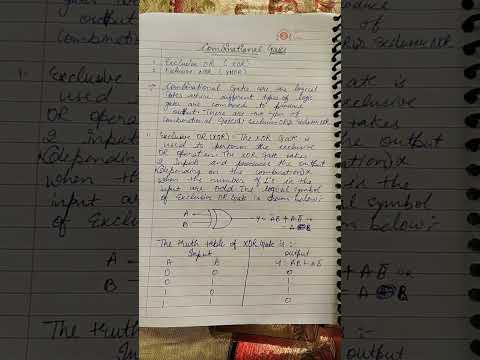 Combinational Gates
1. Exclusive OR (XOR)
2. Exclusive NOR (XNOR)
Combinational Gates are the logical
gates where different types of logic
gate are combined to produce
output. There are two types of
Combinational gates
1. Exclusive OR (XOR) - The XOR Gate is
used to perform the exclusive
OR operation. The XOR gate takes
2 inputs and produces the output
(depending on the combination)
when the number of 1's in the
input are odd. The logical symbol
of Exclusive OR Gate is shown below:-
A
B
Y = A̅B + AB̅ or
A ⊕ B
The truth table of XOR Gate is :-
Input Output
A B Y = A̅B + AB̅
0 0 0
0 1 1
1 0 1
1 1 0